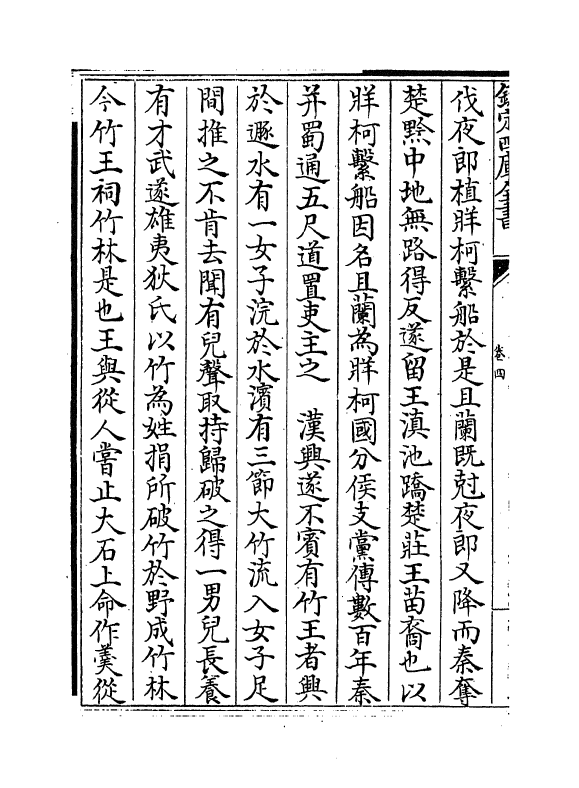 欽定四庫全書
卷四
伐夜郎植牂柯繫船於是且蘭既尅夜郎又降而秦奪
楚黔中地無路得反遂留王滇池蹻楚莊王苗裔也以
牂柯繫船因名且蘭為牂柯國分侯支黨傳數百年秦
并蜀通五尺道置吏主之 漢興遂不賓有竹王者興
於遯水有一女子浣於水濱有三節大竹流入女子足
間推之不肯去聞有兒聲取持歸破之得一男兒長養
有才武遂雄夷狄氏以竹為姓捐所破竹於野成竹林
今竹王祠竹林是也王與從人嘗止大石上命作羹從